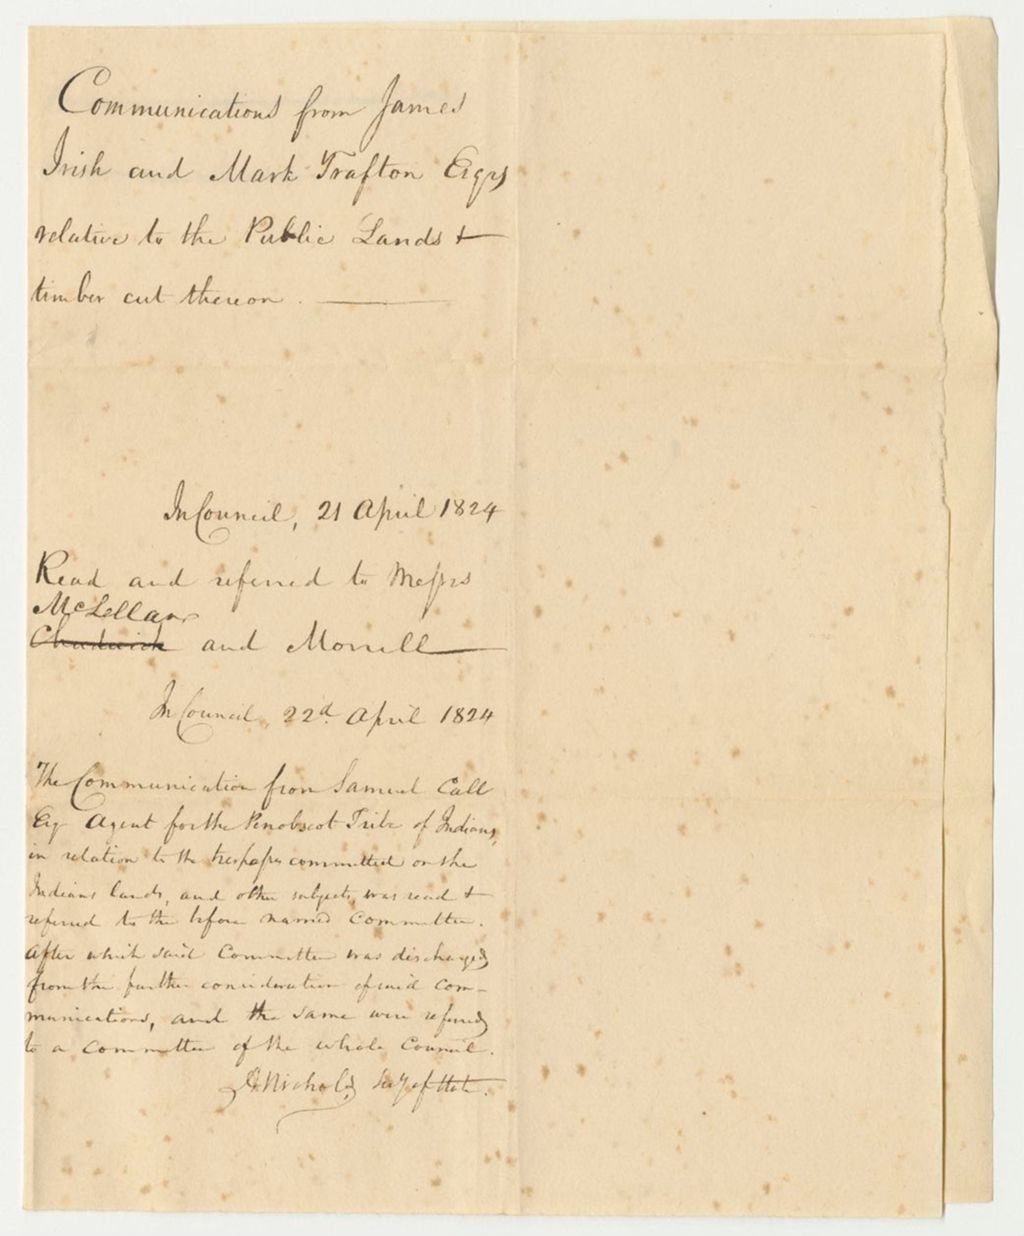 Communications from James
Irish and Mark Trafton Esqrs
relative to the Public Lands &
timber cut thereon.
In Council, 21 April 1824
Read and referred to Messrs
McLellan
Chadwick and Morrill
In Council, 22d. April 1824
The Communication from Samuel Call
Esq Agent for the Penobscot Tribe of Indians,
in relation to the trespasses committed on the
Indians lands, and other subjects, was read &
referred to the before named Committee.
After which said Committee was discharged
from the further consideration of said Com-
munications, and the same were referred
to a committee of the whole Council.
A. Nichols, Secy of State.